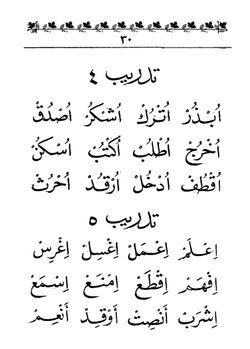 ٣٠
تدريب ٤
اُبْذُرْ اُتْرُكْ اُشْكُرْ اُصْدُقْ
اُخْرُجْ اُطْلُبْ اُكْتُبْ اُسْكُنْ
اُقْطُفْ اُدْخُلْ اُرْقُدْ اُحْرُثْ
تدريب ٥
اِعْلَمْ اِعْمَلْ اِغْسِلْ اِغْرِسْ
اِفْهَمْ اِقْطَعْ اِمْنَعْ اِسْمَعْ
اِشْرَبْ أَنْصِتْ أَوْقِدْ أَنْعِمْ